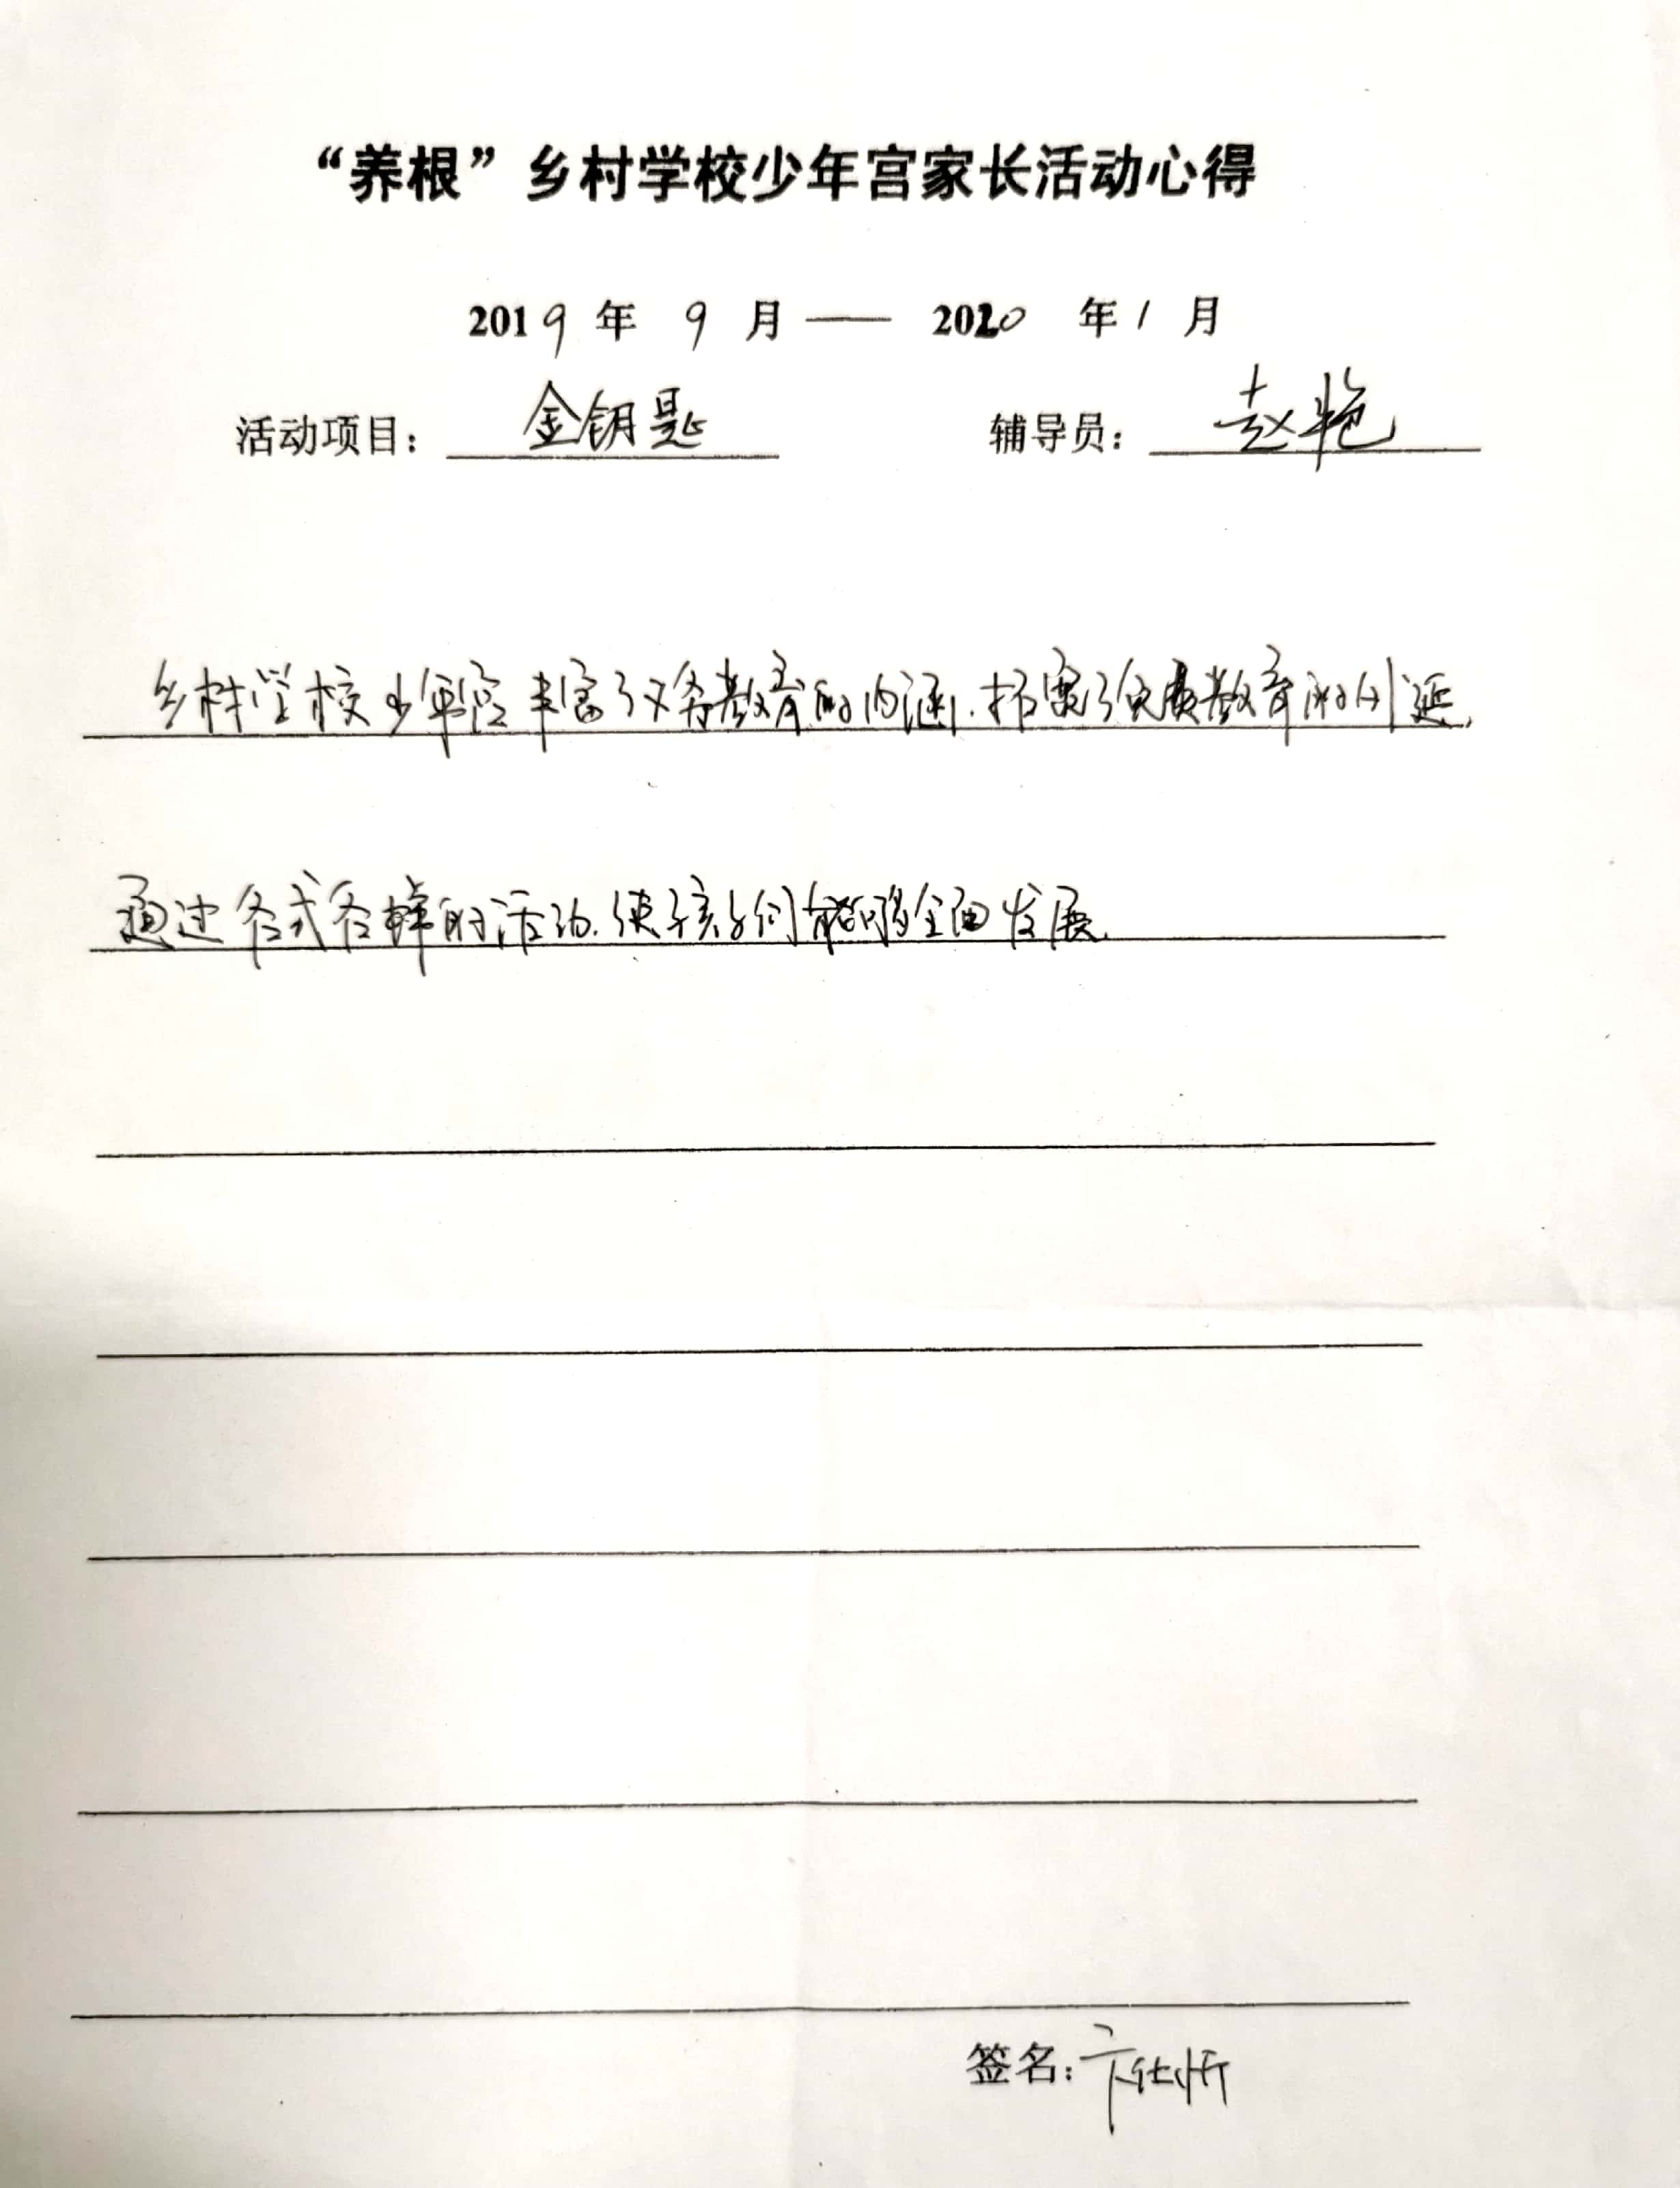 “养根”乡村学校少年宫家长活动心得
2019年 9月——2020 年1月
活动项目：金钥匙 辅导员：赵艳
乡村学校少年宫丰富了义务教育的内涵，拓宽了免费教育的外延，
通过各式各样的活动，使孩子们能够全面发展。
签名：